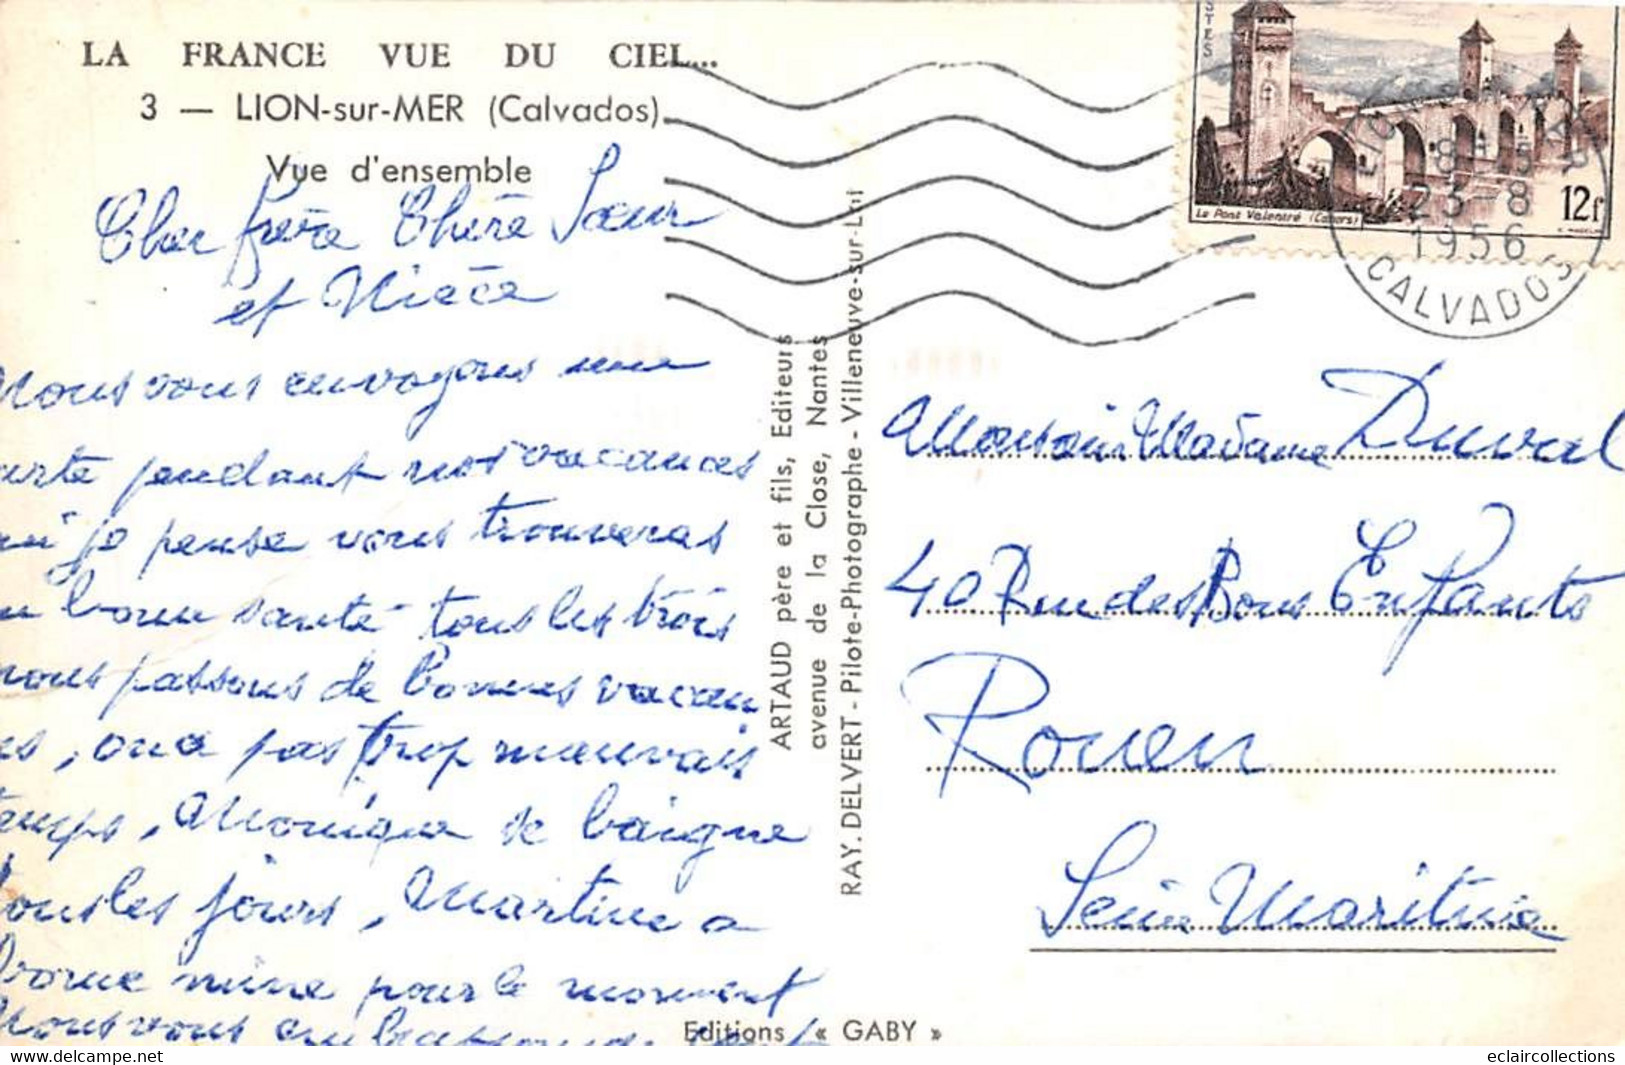 LA FRANCE VUE DU CIEL...
3 — LION-sur-MER (Calvados)
Vue d'ensemble
Cher frère Chère Sœur
et Nièce
Nous vous envoyons une
arte pendant nos vacances
ui je pense vous trouveras
n bonne santé tous les trois
nous passons de bonnes vacan
es, on a pas trop mauvais
temps, Monique se baigne
tous les jours, Martine a
bonne mine pour le moment
Nous vous embrassons
ARTAUD père et fils, Editeurs
avenue de la Close, Nantes
RAY. DELVERT - Pilote-Photographe - Villeneuve-sur-Lot
Editions « GABY »
STES
Le Pont Valentré (Cahors)
12f
23-8
1956
CALVADOS
Monsieur Madame Duval
40 Rue des Bons Enfants
Rouen
Seine Maritime
delcampe.net
eclaircollections